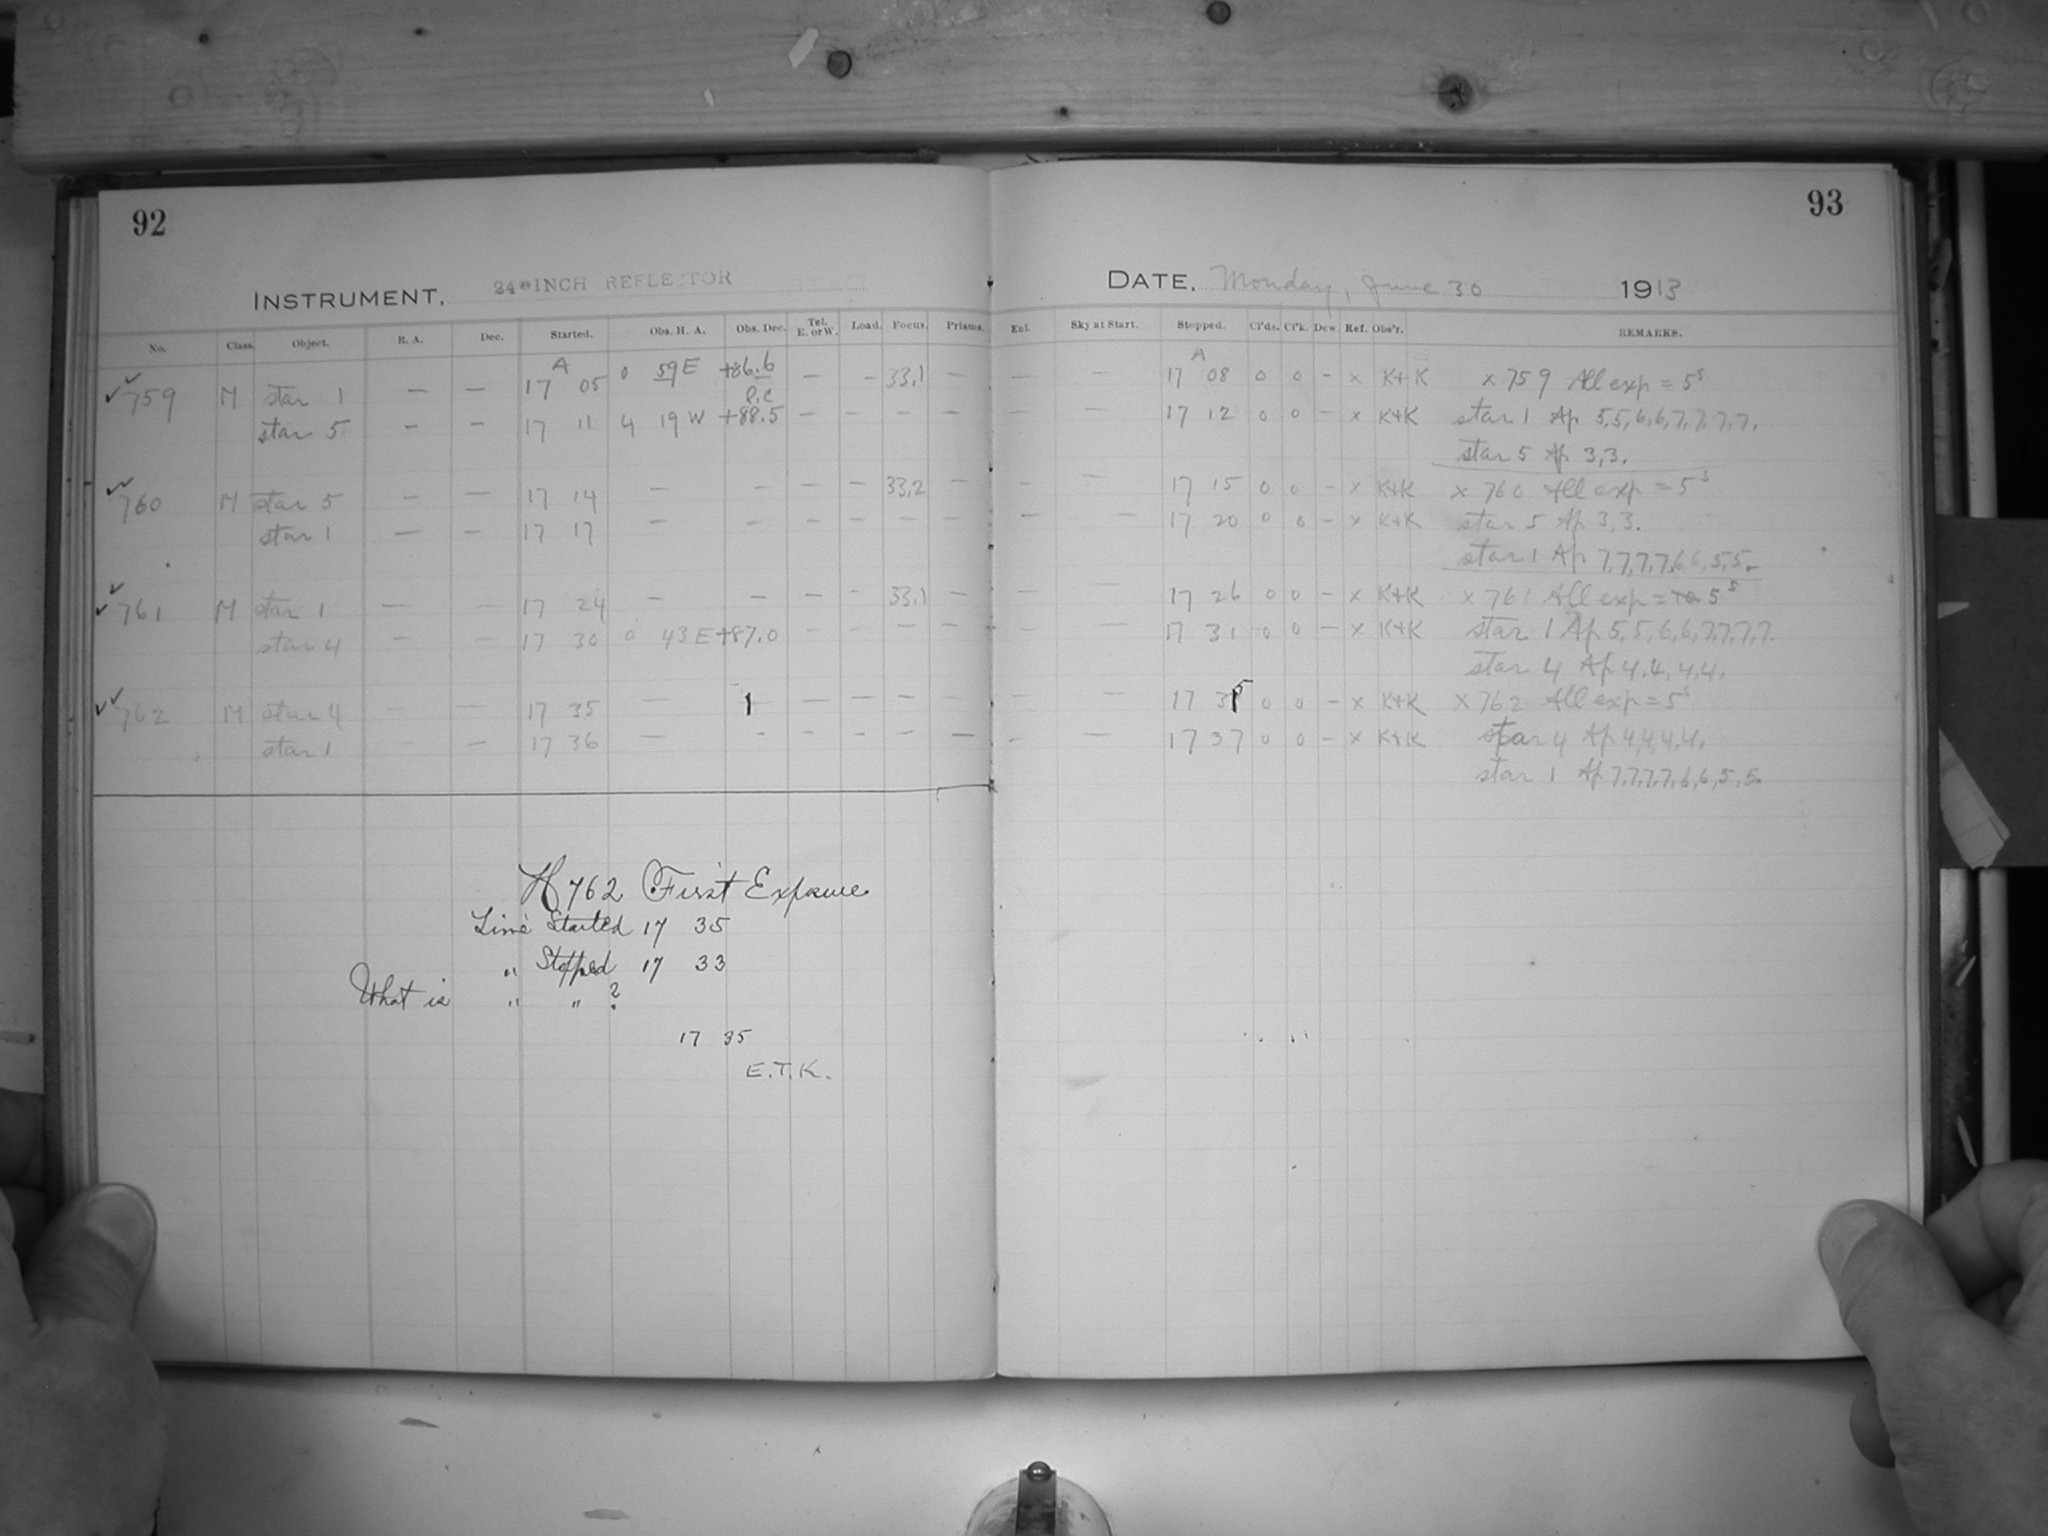 92
INSTRUMENT. 24-INCH REFLECTOR
No. Class. Object. R. A. Dec. Started. Obs. H. A. Obs. Dec. Tel. E. or W. Load. Focus. Prisms.
759 M star 1 — — A 17 05 0 59 E +86.6 — — 33.1 —
star 5 — — 17 11 4 19 W P.C +88.5 — — — —
760 M star 5 — — 17 14 — — — — 33.2 —
star 1 — — 17 17 — — — — — —
761 M star 1 — — 17 24 — — — — 33.1 —
star 4 — — 17 30 0 43 E +87.0 — — — —
762 M star 4 — — 17 35 — — — — — —
star 1 — — 17 36 — — — — — —
H 762 First Exposure
Time Started 17 35
" Stopped 17 33
What is " " ?
17 35
E.T.K.
93
DATE. Monday, June 30 1913
Enl. Sky at Start. Stopped. Cl'ds. Cl'k. Dew. Ref. Obs'r. REMARKS.
— — A 17 08 0 0 - x K+K x 759 All exp = 5s
— — 17 12 0 0 - x K+K star 1 Ap 5,5,6,6,7,7,7,7.
star 5 Ap 3,3.
— — 17 15 0 0 - x K+K x 760 All exp = 5s
— — 17 20 0 0 - x K+K star 5 Ap 3,3.
star 1 Ap 7,7,7,7,6,6,5,5.
— — 17 26 0 0 - x K+K x 761 All exp = 10 5s
— — 17 31 0 0 - x K+K star 1 Ap 5,5,6,6,7,7,7,7.
star 4 Ap 4,4,4,4.
— — 17 35 0 0 - x K+K x 762 All exp = 5s
— — 17 37 0 0 - x K+K star 4 Ap 4,4,4,4.
star 1 Ap 7,7,7,7,6,6,5,5.